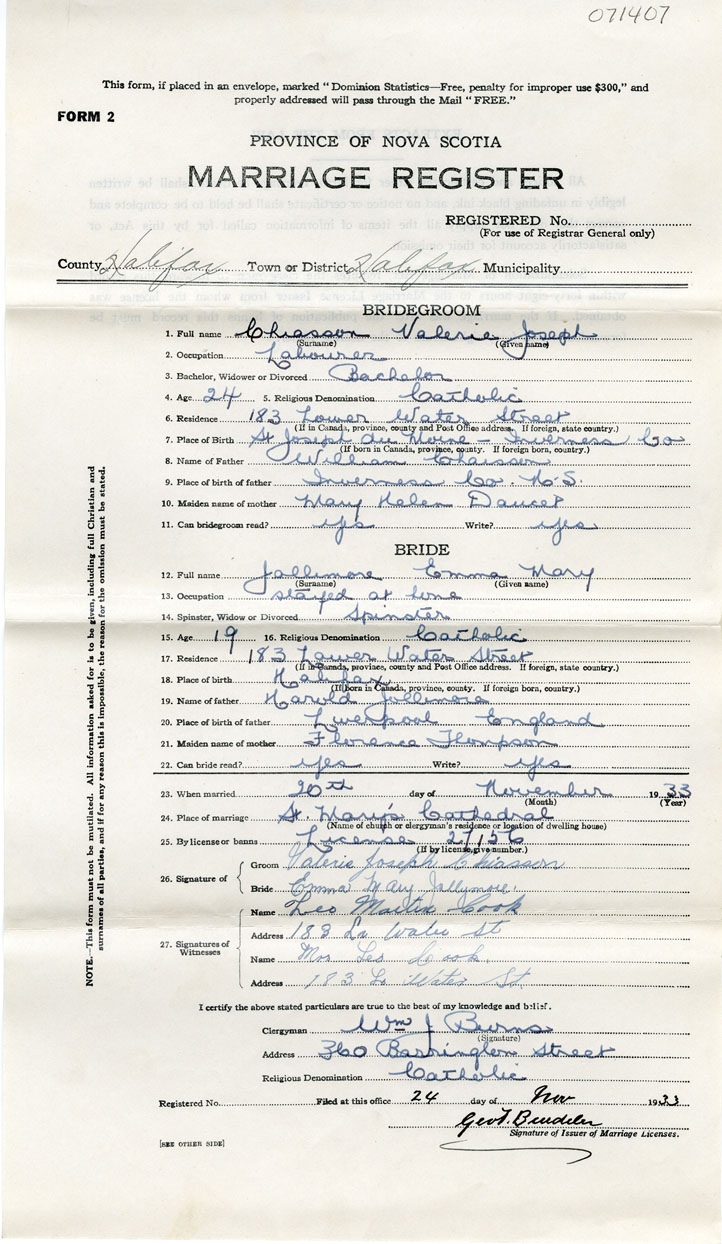 071407
This form, if placed in an envelope, marked "Dominion Statistics—Free, penalty for improper use $300," and
properly addressed will pass through the Mail "FREE."
FORM 2
PROVINCE OF NOVA SCOTIA
MARRIAGE REGISTER
REGISTERED No.
(For use of Registrar General only)
County Halifax Town or District Halifax Municipality
BRIDEGROOM
1. Full name Chiasson Valerie Joseph
(Surname) (Given name)
2. Occupation Labourer
3. Bachelor, Widower or Divorced Bachelor
4. Age 24 5. Religious Denomination Catholic
6. Residence 183 Lower Water Street
(If in Canada, province, county and Post Office address. If foreign, state country.)
7. Place of Birth St Joseph du Moine - Inverness Co
(If born in Canada, province, county. If foreign born, country.)
8. Name of Father William Chaisson
9. Place of birth of father Inverness Co. N.S.
10. Maiden name of mother Mary Helen Daucet
11. Can bridegroom read? yes Write? yes
BRIDE
12. Full name Jallimore Emma Mary
(Surname) (Given name)
13. Occupation stayed at home
14. Spinster, Widow or Divorced Spinster
15. Age 19 16. Religious Denomination Catholic
17. Residence 183 Lower Water Street
(If in Canada, province, county and Post Office address. If foreign, state country.)
18. Place of birth Halifax
(If Born in Canada, province, county. If foreign born, country.)
19. Name of father Harold Jollimore
20. Place of birth of father Liverpool England
21. Maiden name of mother Florence Thompson
22. Can bride read? yes Write? yes
23. When married 20th day of November 1933
(Month) (Year)
24. Place of marriage St. Mary's Cathedral
(Name of church or clergyman's residence or location of dwelling house)
25. By license or banns License 27156
(If by license, give number.)
26. Signature of
Groom Valerie Joseph Chiasson
Bride Emma Mary Jallymore.
27. Signatures of Witnesses
Name Leo Martin Cook
Address 183 Lr Water St
Name Mrs Leo Cook.
Address 183 Lr Water St.
I certify the above stated particulars are true to the best of my knowledge and belief.
Clergyman Wm J Burns
(Signature)
Address 360 Barrington Street
Religious Denomination Catholic
Registered No. Filed at this office 24 day of Nov 1933
Signature of Issuer of Marriage Licenses.
[SEE OTHER SIDE]
NOTE.—This form must not be mutilated. All information asked for is to be given, including full Christian and
surnames of all parties, and if for any reason this is impossible, the reason for the omission must be stated.